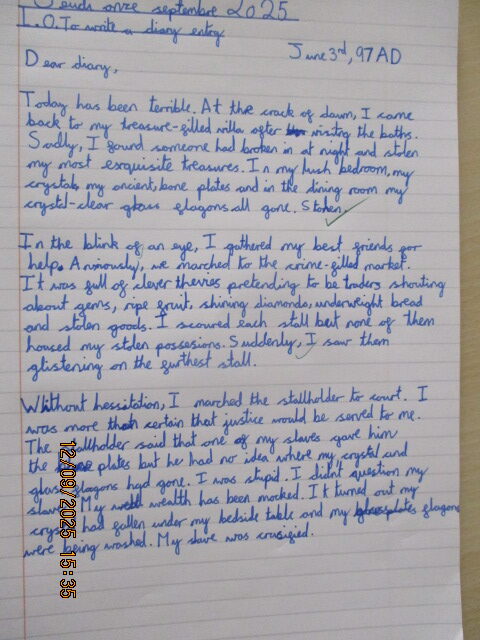 Jeudi onze septembre 2025
L.O. To write a diary entry
June 3rd, 97AD
Dear diary,
Today has been terrible. At the crack of dawn, I came
back to my treasure-filled villa after visitng the baths.
Sadly, I found someone had broken in at night and stolen
my most exsquisite treasures. In my lush bedroom, my
crystal, my ancient, bone plates and in the dining room my
crystal-clear glass flagons all gone. Stolen.
In the blink of an eye, I gathered my best friends for
help. Anxiously, we marched to the crime-filled market.
It was full of clever thevies pretending to be traders shouting
about gems, ripe fruit, shining diamonds, underweight bread
and stolen goods. I scoured each stall but none of them
housed my stolen possesions. Suddenly, I saw them
glistening on the furthest stall.
Whithout hessitation, I marched the stallholder to court. I
was more than certain that justice would be served to me.
The stallholder said that one of my slaves gave him
the plates but he had no idea where my crystal and
glass flagons had gone. I was stupid. I didn't question my
slave. My wealth has been mocked. It turned out my
crystal had fallen under my bedside table and my flagons
were being washed. My slave was crusified.
12/09/2025 15:35